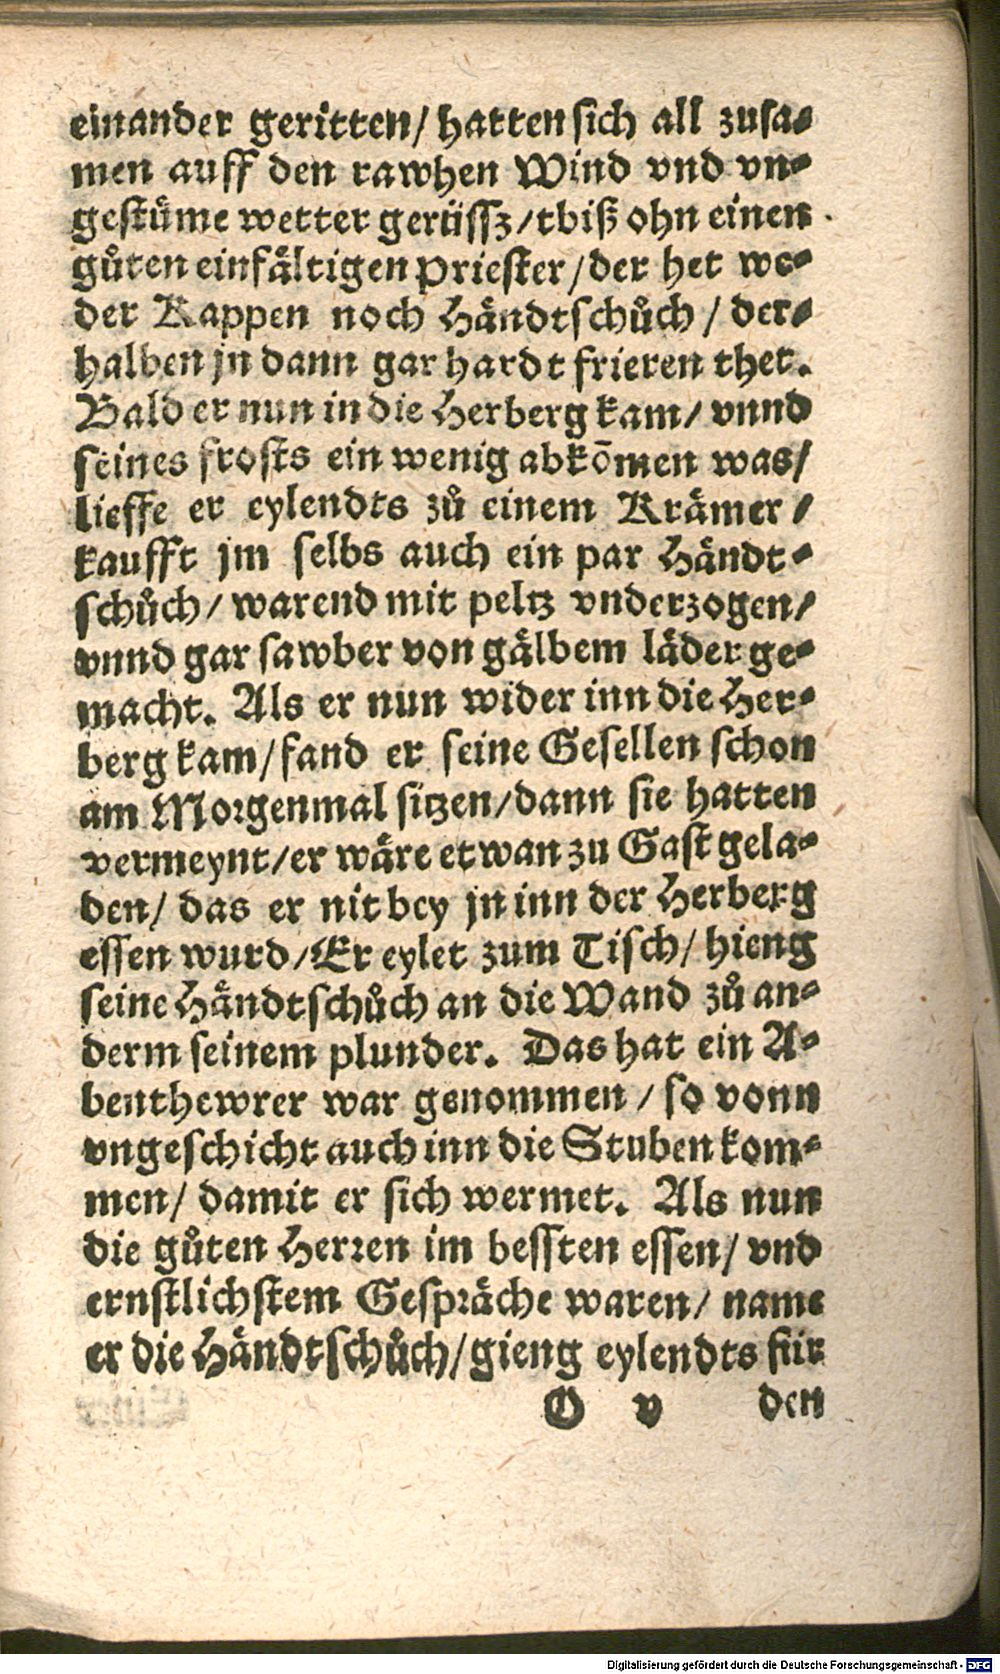 einander geritten/ hatten sich all zusa⸗
men auff den rawhen Wind vnd vn⸗
gestüme wetter gerüssz/tbiß ohn einen
gůten einfältigen Priester/der het we⸗
der Kappen noch Händtschůch / der⸗
halben jn dann gar hardt frieren thet.
Bald er nun in die Herberg kam/ vnnd
seines frosts ein wenig abkōmen was/
lieffe er eylendts zů einem Krämer /
kaufft jm selbs auch ein par Händt⸗
schůch/ warend mit peltz vnderzogen/
vnnd gar sawber von gälbem läder ge⸗
macht. Als er nun wider inn die Her⸗
berg kam/fand er seine Gesellen schon
am Morgenmal sitzen/dann sie hatten
vermeynt/er wäre etwan zu Gast gela⸗
den/ das er nit bey jn inn der Herberg
essen wurd/Er eylet zum Tisch/ hieng
seine Händtschůch an die Wand zů an⸗
derm seinem plunder. Das hat ein A⸗
benthewrer war genommen / so vonn
vngeschicht auch inn die Stuben kom⸗
men/ damit er sich wermet. Als nun
die gůten Herren im bessten essen/ vnd
ernstlichstem Gespräche waren/ name
er die Händtschůch/gieng eylendts für
O v den
Digitalisierung gefördert durch die Deutsche Forschungsgemeinschaft - DFG